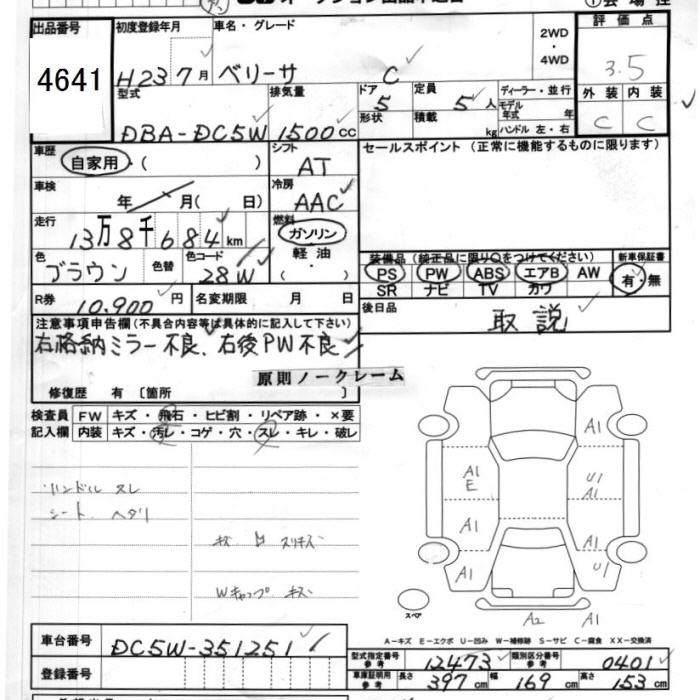 出品番号 初度登録年月 車名・グレード 2WD・4WD 評価点
4641 H23 7月 ベリーサ C 3.5
型式 排気量 ドア 5 定員 5人 ディーラー・並行 外装 内装
DBA-DC5W 1500cc 形状 積載 kg モデル年式 年 C C
ハンドル 左・右
車歴 自家用・( ) シフト AT セールスポイント(正常に機能するものに限ります)
車検 年 月( 日) 冷房 AAC
走行 13万8千684km 燃料 ガソリン
軽油・( )
色 ブラウン 色替 色コード 28W
装備品(純正品に限り○をつけてください) 新車保証書
PS PW ABS エアB AW 有・無
SR ナビ TV カワ
R券 10,900円 名変期限 月 日 後日品 取説
注意事項申告欄(不具合内容等は具体的に記入して下さい)
右格納ミラー不良、右後PW不良
原則ノークレーム
修復歴 有 〔箇所 〕
検査員 FW キズ・飛石・ヒビ割・リペア跡・×要
記入欄 内装 キズ・汚レ・コゲ・穴・スレ・キレ・破レ
ハンドル スレ
シート ヘタリ
キズ 凹 スリキズ
Wキャップ キズ
A1
A1
E
U1
A1
A1
A1
A1
U1
スペア
A2 A1
A-キズ E-エクボ U-凹み W-補修跡 S-サビ C-腐食 XX-交換済
車台番号 DC5W-351251
型式指定番号 参考 12473 類別区分番号 参考 0401
登録番号
車庫証明用 参考 長さ 397cm 幅 169cm 高さ 153cm